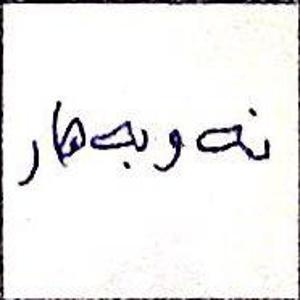 نەوبەهار